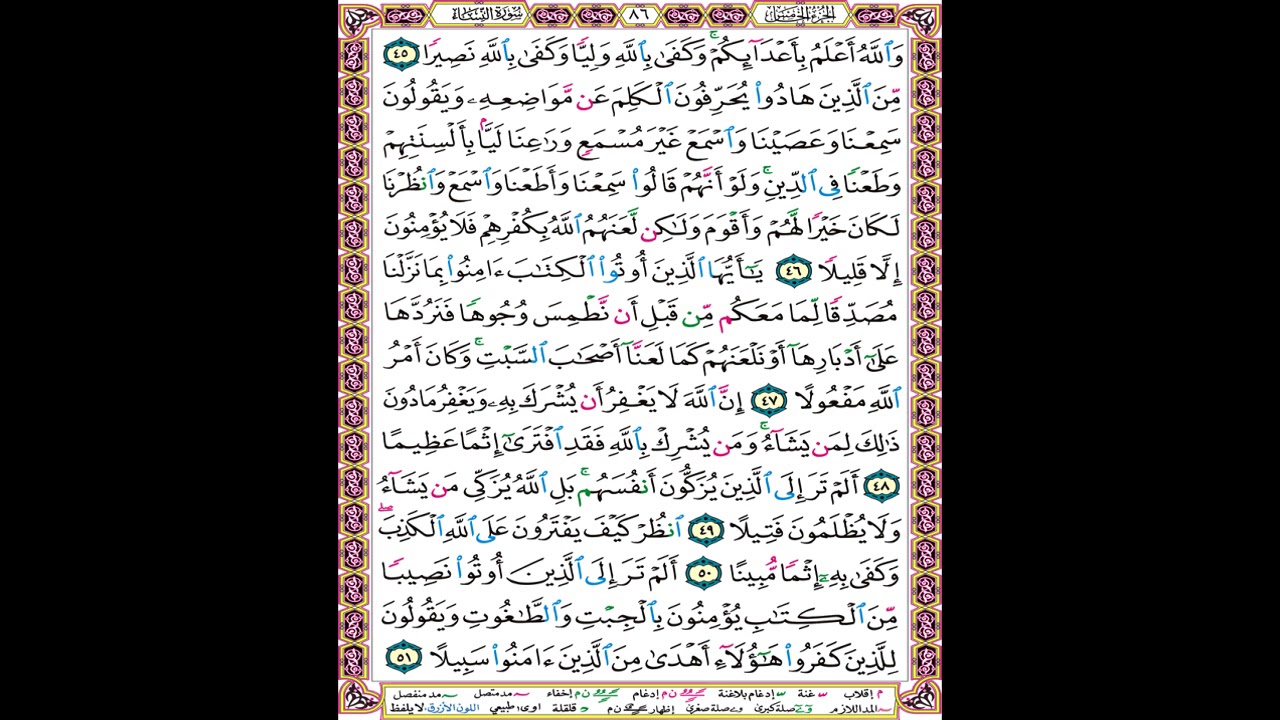 الجزء الخامس
٨٦
سورة النساء
وَٱللَّهُ أَعْلَمُ بِأَعْدَآئِكُمْ ۚ وَكَفَىٰ بِٱللَّهِ وَلِيًّا وَكَفَىٰ بِٱللَّهِ نَصِيرًا ٤٥
مِّنَ ٱلَّذِينَ هَادُوا۟ يُحَرِّفُونَ ٱلْكَلِمَ عَن مَّوَاضِعِهِۦ وَيَقُولُونَ
سَمِعْنَا وَعَصَيْنَا وَٱسْمَعْ غَيْرَ مُسْمَعٍ وَرَٰعِنَا لَيًّۢا بِأَلْسِنَتِهِمْ
وَطَعْنًا فِى ٱلدِّينِ ۚ وَلَوْ أَنَّهُمْ قَالُوا۟ سَمِعْنَا وَأَطَعْنَا وَٱسْمَعْ وَٱنظُرْنَا
لَكَانَ خَيْرًا لَّهُمْ وَأَقْوَمَ وَلَٰكِن لَّعَنَهُمُ ٱللَّهُ بِكُفْرِهِمْ فَلَا يُؤْمِنُونَ
إِلَّا قَلِيلًا ٤٦ يَٰٓأَيُّهَا ٱلَّذِينَ أُوتُوا۟ ٱلْكِتَٰبَ ءَامِنُوا۟ بِمَا نَزَّلْنَا
مُصَدِّقًا لِّمَا مَعَكُم مِّن قَبْلِ أَن نَّطْمِسَ وُجُوهًا فَنَرُدَّهَا
عَلَىٰٓ أَدْبَارِهَآ أَوْ نَلْعَنَهُمْ كَمَا لَعَنَّآ أَصْحَٰبَ ٱلسَّبْتِ ۚ وَكَانَ أَمْرُ
ٱللَّهِ مَفْعُولًا ٤٧ إِنَّ ٱللَّهَ لَا يَغْفِرُ أَن يُشْرَكَ بِهِۦ وَيَغْفِرُ مَا دُونَ
ذَٰلِكَ لِمَن يَشَآءُ ۚ وَمَن يُشْرِكْ بِٱللَّهِ فَقَدِ ٱفْتَرَىٰٓ إِثْمًا عَظِيمًا
٤٨ أَلَمْ تَرَ إِلَى ٱلَّذِينَ يُزَكُّونَ أَنفُسَهُم ۚ بَلِ ٱللَّهُ يُزَكِّى مَن يَشَآءُ
وَلَا يُظْلَمُونَ فَتِيلًا ٤٩ ٱنظُرْ كَيْفَ يَفْتَرُونَ عَلَى ٱللَّهِ ٱلْكَذِبَ ۖ
وَكَفَىٰ بِهِۦٓ إِثْمًا مُّبِينًا ٥٠ أَلَمْ تَرَ إِلَى ٱلَّذِينَ أُوتُوا۟ نَصِيبًا
مِّنَ ٱلْكِتَٰبِ يُؤْمِنُونَ بِٱلْجِبْتِ وَٱلطَّٰغُوتِ وَيَقُولُونَ
لِلَّذِينَ كَفَرُوا۟ هَٰٓؤُلَآءِ أَهْدَىٰ مِنَ ٱلَّذِينَ ءَامَنُوا۟ سَبِيلًا ٥١
م إقلاب غنة إدغام بلاغنة ن م إدغام ن م إخفاء مد متصل مد منفصل
المد اللازم صلة كبرى صلة صغرى إظهار ن م قلقلة اوى طبيعي اللون الأزرق لا يلفظ